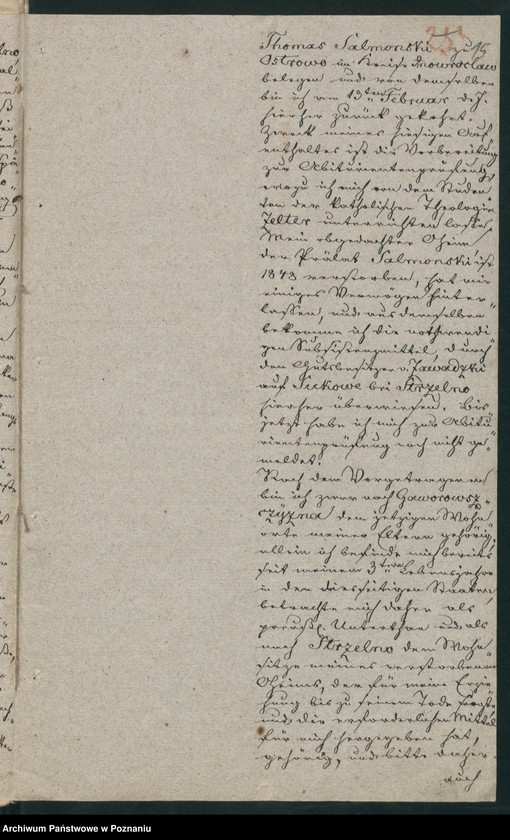 15
Thomas Salmonski zu
Ostrowo im Kreise Inowraclaw
belegen und von demselben
bin ich am 13ten Februar d. J.
hierher zurück gekehrt.
Zweck meines hiesigen Auf-
enthaltes ist die Vorbereitung
zur Abiturientenprüfung,
wozu ich mich von dem Studen-
ten der katholischen Theologie
Zelter unterrichten lasse.
Mein obgedachter Oheim
der Prälat Salmonski ist
1848 verstorben, hat mir
einiges Vermögen hinter-
lassen, und aus demselben
bekomme ich die nothwendi-
gen Subsistenzmittel, durch
den Gutsbesitzer v. Zawadzki
auf Sickowe bei Strzelno
hierher überwiesen. Bis
jetzt habe ich mich zur Abitu-
rientenprüfung noch nicht ge-
meldet.
Nach dem Vorgetragenen
bin ich zwar nach Gaworowsz-
czÿzna dem jetzigen Wohn-
orte meiner Eltern gehörig,
allein ich befinde mich bereits
seit meinem 3ten Lebensjahre
in den diesseitigen Staaten,
betrachte mich daher als
preuß. Unterthan und als
nach Strzelno dem Wohn-
sitze meines verstorbenen
Oheims, der für meine Erzie-
hung bis zu seinem Tode sorgte
und die erforderlichen Mittel
für mich hergegeben hat,
gehörig, und bitte daher
auch
Archiwum Państwowe w Poznaniu